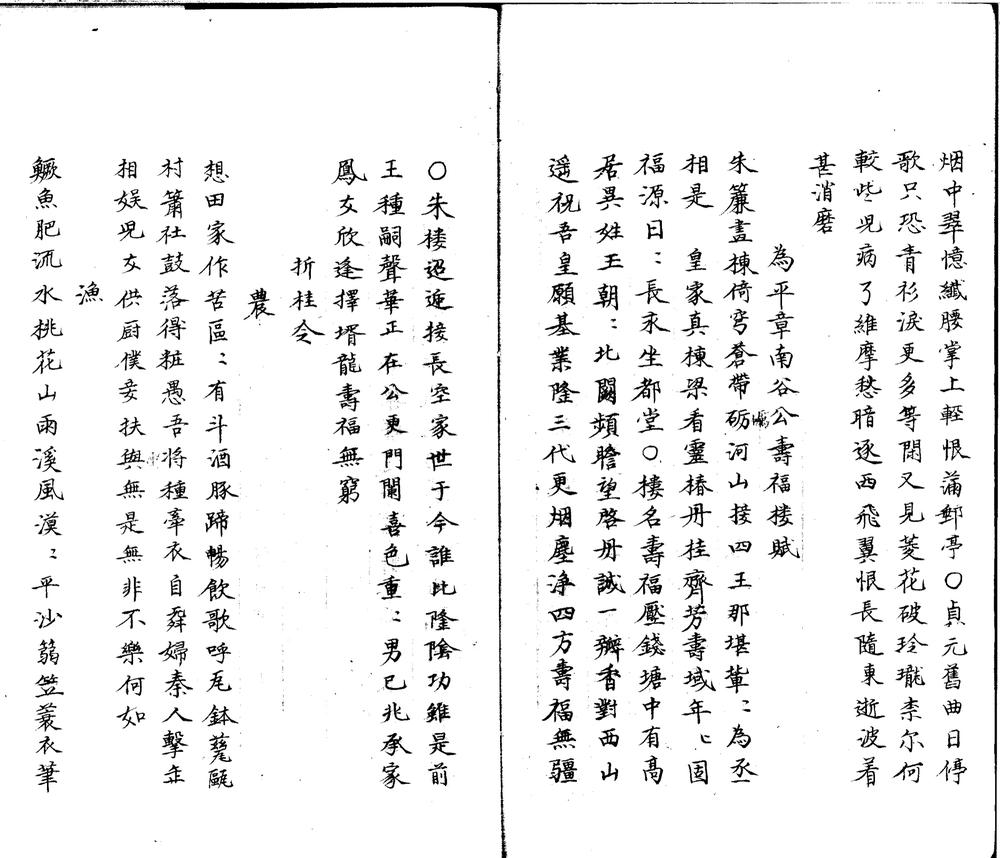 烟中翠憶纖腰掌上輕恨滿郵亭○貞元舊曲日停
歌只恐青衫淚更多等閑又見菱花破玲瓏柰尔何
較些児病了維摩愁暗逐西飛翼恨長隨東逝波着
甚消磨
為平章南谷公壽福楼賦
朱簾畫棟倚穹蒼帶砺河山接四王那堪輩〻為丞
相是　皇家真棟梁看靈椿丹桂齊芳壽域年〻固
福源日〻長永坐都堂○樓名壽福壓錢塘中有高
居異姓王朝〻北闕頻瞻望啓丹誠一瓣香對西山
遥祝吾皇願基業隆三代更烟塵浄四方壽福無疆
○朱楼迢遞接長空家世于今誰比隆陰功雖是前
王種嗣聲華正在公更門闌喜色重〻男已兆承家
鳳女欣逢擇壻龍壽福無窮
折桂令
農
想田家作苦區〻有斗酒豚蹄暢飲歌呼瓦鉢甆甌
村簫社鼓落得粧愚吾将種牽衣自舜婦秦人擊缶
相娱児女供厨僕妾扶與無是無非不樂何如
漁
鱖魚肥流水桃花山雨溪風漠〻平沙篛笠蓑衣筆